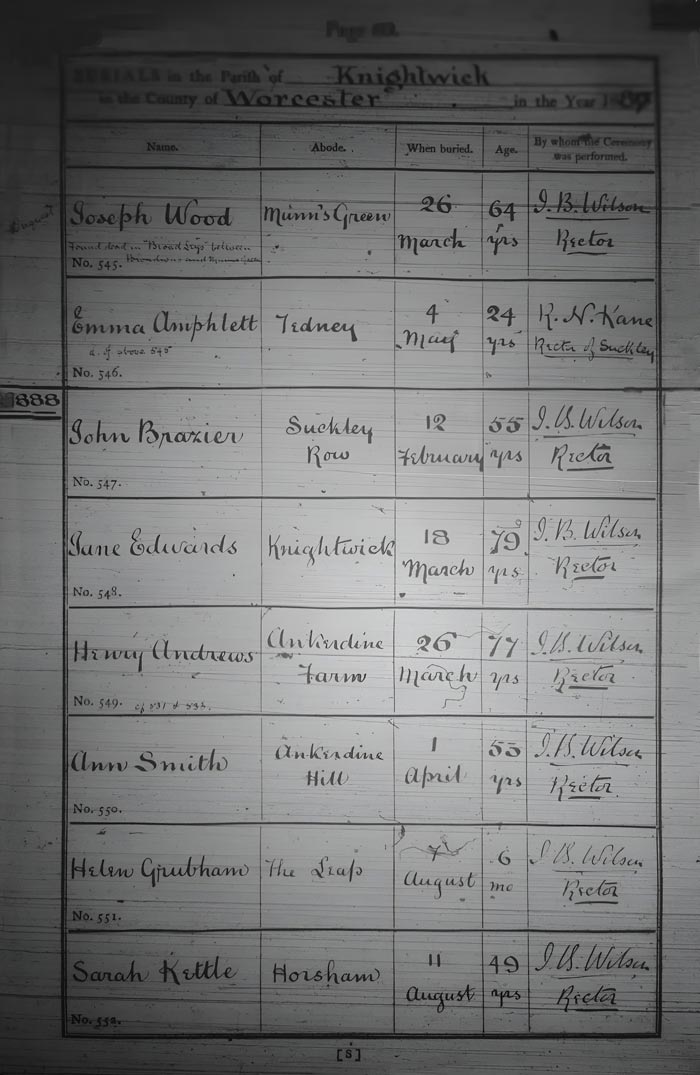 Page
BURIALS in the Parish of Knightwick
in the County of Worcester in the Year 18
Name. Abode. When buried. Age. By whom the Ceremony was performed.
August
Joseph Wood Munn's Green 26 March 64 yrs J. B. Wilson Rector
Found dead in "Broad Leys" between
No. 545.
Emma Amphlett Tedney 4 May 24 yrs R. N. Kane Rector of Suckley
d. of above 545
No. 546.
1888
John Brazier Suckley Row 12 February 55 yrs J. B. Wilson Rector
No. 547.
Jane Edwards Knightwick 18 March 79 yrs J. B. Wilson Rector
No. 548.
Henry Andrews Ankerdine Farm 26 March 77 yrs J. B. Wilson Rector
No. 549. cf 531 &
Ann Smith Ankerdine Hill 1 April 55 yrs J. B. Wilson Rector
No. 550.
Helen Grubham The 7 August 6 mo J. B. Wilson Rector
No. 551.
Sarah Kettle Horsham 11 August 49 yrs J. B. Wilson Rector
No. 552.
[8]